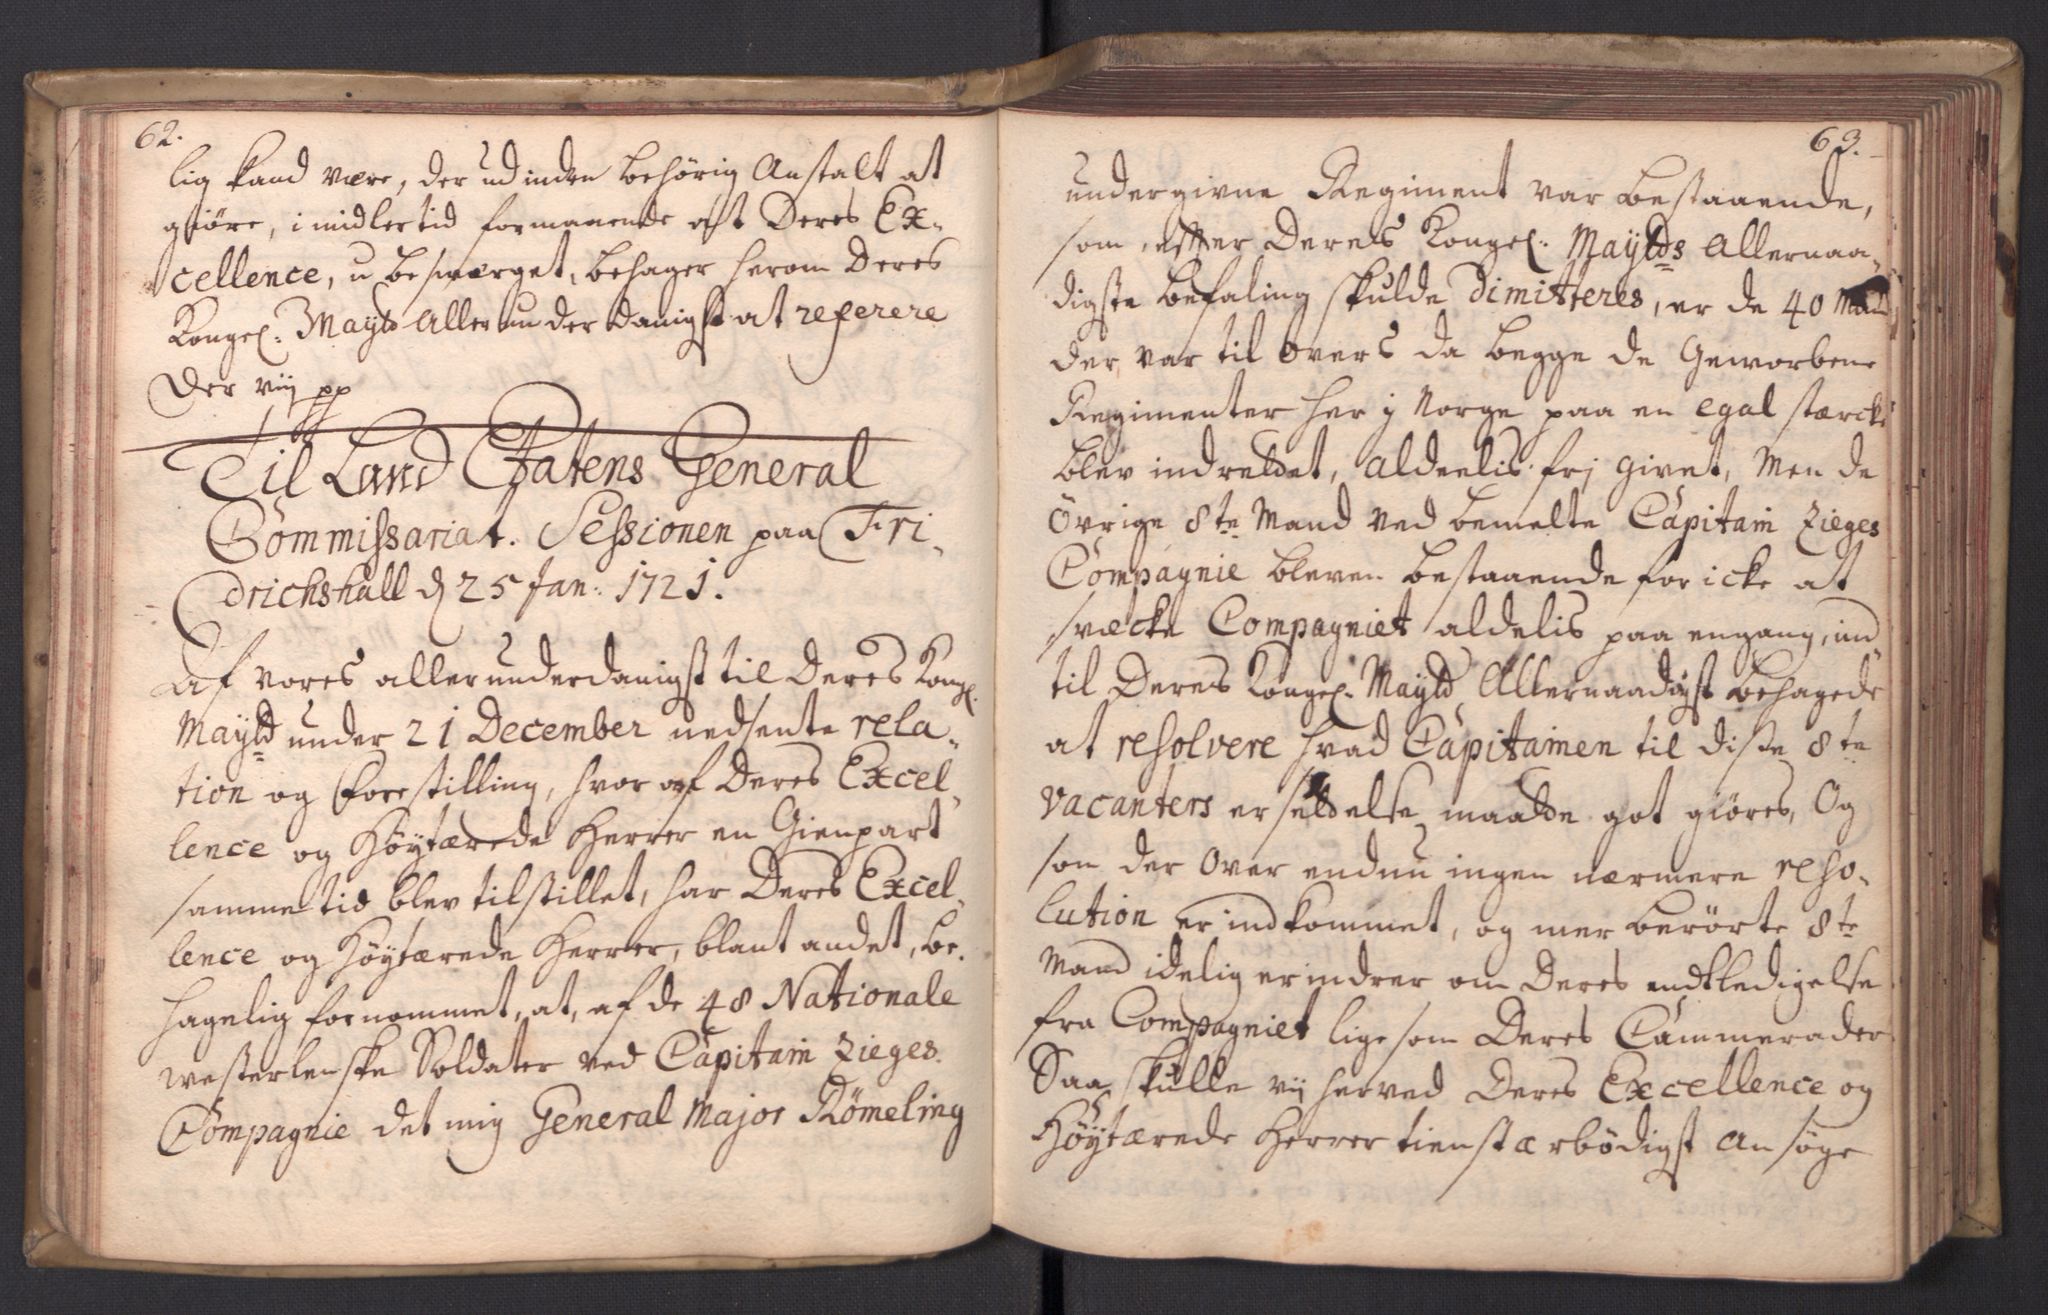 62.
lig kand være, der ud inden behörig Anstalt at
giöre, imidlertid formaaende at Deres Ex-
cellence, u besværget, behager herom Deres
Kongel. Mayld allerunderdanigst at referere
Der vij pp
Til Land Etatens General
Commissariat. Sessionen paa Fri-
drichshall d 25 Jan: 1721.
Af vores allerunderdanigst til Deres Kongl.
Mayld under 21 December nedsente rela-
tion og forestilling, hvor af Deres Excel-
lence og Höytærede Herrer en Gienpart
samme tid blev tilstillet, har Deres Excel-
lence og Höytærede Herrer, blant andet, be-
hagelig fornommet, at, af de 48 Nationale
westerlenske Soldater ved Capitain Zieges
Compagnie det mig General Major Römeling
63.
undergivne Regiment var bestaaende,
som, efter Deres Kongel: Maylds Allernaa-
digste befaling skulde dimitteres, er de 40 Mand
der var til overs da begge de Geworbene
Regimenter her i Norge paa en egal stærcke
blev indrettet, aldeelis frj givet, Men de
övrige 8te Mand ved bemelte Capitain Zieges
Compagnie bleven bestaaende for icke at
svæcke Compagniet aldelis paa engang, ind
til Deres Kongel. Mayld Allernaadigst behagede
at resolvere hvad Capitainen til disse 8te
vacanters ersettelse maatte got giöres, Og
som der over endnu ingen nærmere reso-
lution er indkommet, og mer berörte 8te
Mand idelig erindrer om Deres endtledigelse
fra Compagniet lige som Deres Cammerader
Saa skulle vij herved Deres Excellence og
Höytærede Herrer tienstærbödigst ansöge